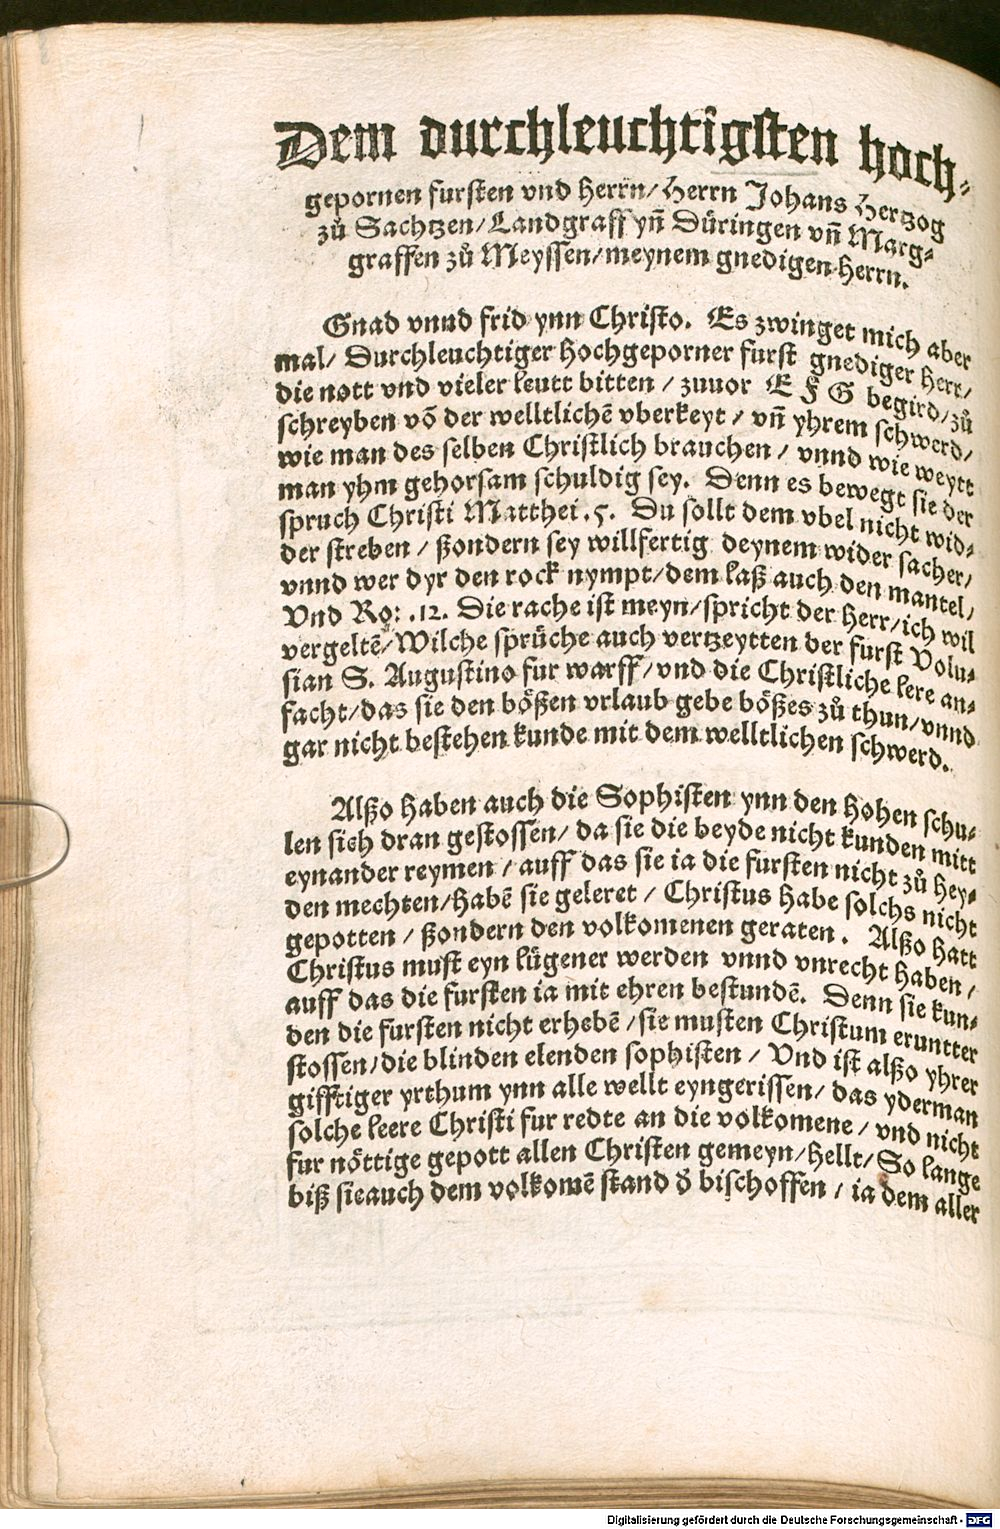 Dem durchleuchtigsten hoch⸗
gepornen fursten vnd herrn/ Herrn Johans Hertzog
zů Sachtzen/ Landgraff yñ Düringen vñ Marg⸗
graffen zů Meyssen/ meynem gnedigen herrn.
Gnad vnnd frid ynn Christo. Es zwinget mich aber
mal/ Durchleuchtiger hochgeporner furst gnediger herr/
die nott vnd vieler leutt bitten / zuuor E F G begird/ zů
schreyben võ der welltlichẽ vberkeyt / vñ yhrem schwerd/
wie man des selben Christlich brauchen / vnnd wie weytt
man yhm gehorsam schuldig sey. Denn es bewegt sie der
spruch Christi Matthei .5. Du sollt dem vbel nicht wid⸗
der streben / ßondern sey willfertig deynem wider sacher/
vnnd wer dyr den rock nympt/ dem laß auch den mantel/
Vnd Ro: .12. Die rache ist meyn/ spricht der herr/ ich wil
vergeltẽ/ Wilche sprüche auch vertzeytten der furst Volu⸗
sian S. Augustino fur warff/ vnd die Christliche lere an⸗
facht/ das sie den bößen vrlaub gebe bößes zů thun/ vnnd
gar nicht bestehen kunde mit dem welltlichen schwerd.
Alßo haben auch die Sophisten ynn den hohen schu⸗
len sich dran gestossen/ da sie die beyde nicht kunden mitt
eynander reymen / auff das sie ia die fursten nicht zů hey⸗
den mechten/ habẽ sie geleret / Christus habe solchs nicht
gepotten / ßondern den volkomenen geraten . Alßo hatt
Christus must eyn lügener werden vnnd vnrecht haben /
auff das die fursten ia mit ehren bestundẽ. Denn sie kun⸗
den die fursten nicht erhebẽ / sie musten Christum eruntter
stossen/ die blinden elenden sophisten / Vnd ist alßo yhrer
gifftiger yrthum ynn alle wellt eyngerissen/ das yderman
solche leere Christi fur redte an die volkomene / vnd nicht
fur nöttige gepott allen Christen gemeyn/ hellt/ So lange
biß sieauch dem volkomẽ stand d̕ bischoffen / ia dem aller
Digitalisierung gefördert durch die Deutsche Forschungsgemeinschaft - DFG